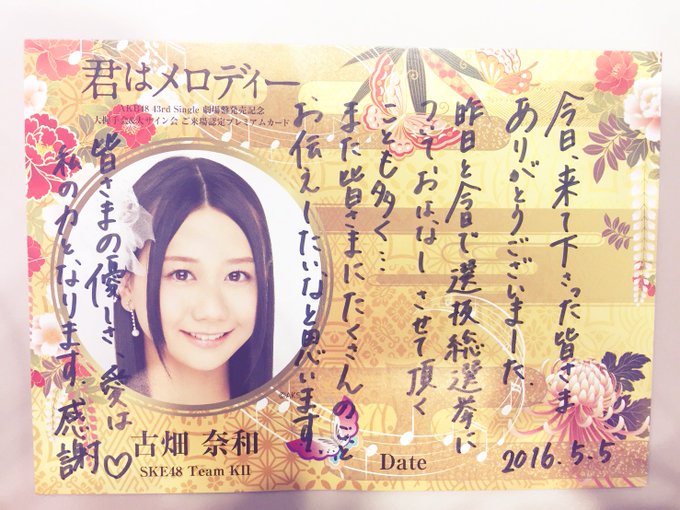 君はメロディー
AKB48 43rd Single 劇場盤発売記念
大握手会&大サイン会 ご来場認定プレミアムカード
今日、来て下さった皆さま
ありがとうございました。
昨日と今日で選抜総選挙に
ついておはなしさせて頂く
ことも多く…
また皆さまにたくさんのこと
お伝えしたいなと思います
皆さまの優しさ、愛は
私の力と、なります。感謝♡
古畑 奈和
SKE48 Team KII
Date
2016.5.5